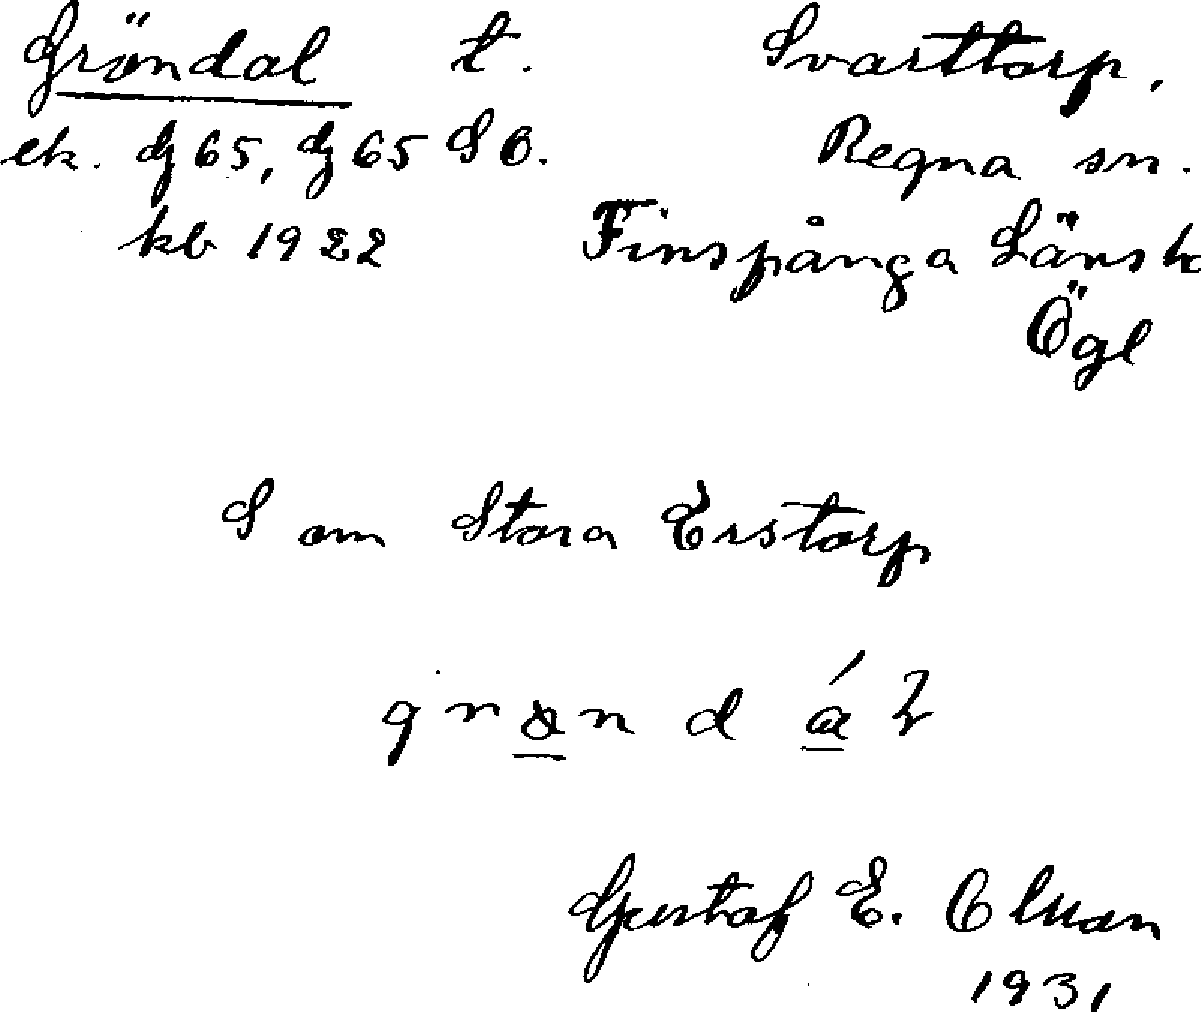 Gröndal t. Svarttorp.
ek. G 65, G 65 S O. Regna sn.
kb 1922 Finspånga Länsh
Ögl
S om Stora Erstorp
Gustaf E. Olsson
1931